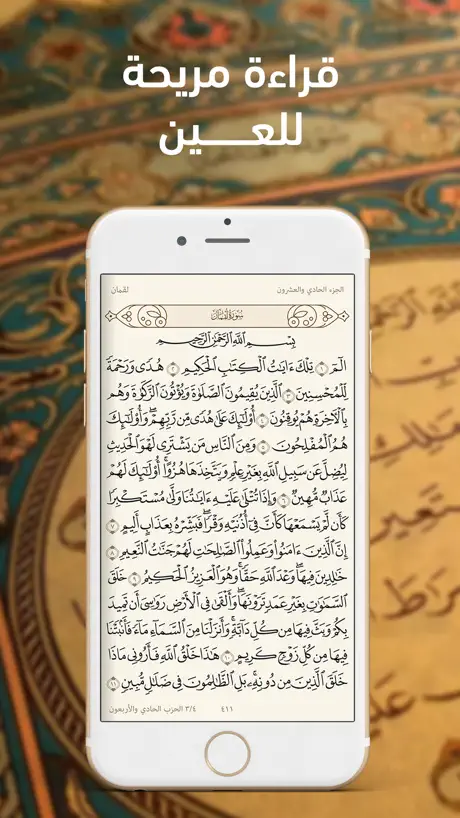 قراءة مريحة
للعـــــين
الجزء الحادي والعشرون
لقمان
سورة لقمان
بِسْمِ اللَّهِ الرَّحْمَٰنِ الرَّحِيمِ
الٓمٓ ١ تِلْكَ ءَايَٰتُ ٱلْكِتَٰبِ ٱلْحَكِيمِ ٢ هُدًى وَرَحْمَةً
لِّلْمُحْسِنِينَ ٣ ٱلَّذِينَ يُقِيمُونَ ٱلصَّلَوٰةَ وَيُؤْتُونَ ٱلزَّكَوٰةَ وَهُم
بِٱلْءَاخِرَةِ هُمْ يُوقِنُونَ ٤ أُوْلَٰٓئِكَ عَلَىٰ هُدًى مِّن رَّبِّهِمْ ۖ وَأُوْلَٰٓئِكَ
هُمُ ٱلْمُفْلِحُونَ ٥ وَمِنَ ٱلنَّاسِ مَن يَشْتَرِى لَهْوَ ٱلْحَدِيثِ
لِيُضِلَّ عَن سَبِيلِ ٱللَّهِ بِغَيْرِ عِلْمٍ وَيَتَّخِذَهَا هُزُوًا ۚ أُوْلَٰٓئِكَ لَهُمْ
عَذَابٌ مُّهِينٌ ٦ وَإِذَا تُتْلَىٰ عَلَيْهِ ءَايَٰتُنَا وَلَّىٰ مُسْتَكْبِرًا
كَأَن لَّمْ يَسْمَعْهَا كَأَنَّ فِىٓ أُذُنَيْهِ وَقْرًا ۖ فَبَشِّرْهُ بِعَذَابٍ أَلِيمٍ ٧
إِنَّ ٱلَّذِينَ ءَامَنُواْ وَعَمِلُواْ ٱلصَّٰلِحَٰتِ لَهُمْ جَنَّٰتُ ٱلنَّعِيمِ ٨
خَٰلِدِينَ فِيهَا ۖ وَعْدَ ٱللَّهِ حَقًّا ۚ وَهُوَ ٱلْعَزِيزُ ٱلْحَكِيمُ ٩ خَلَقَ
ٱلسَّمَٰوَٰتِ بِغَيْرِ عَمَدٍ تَرَوْنَهَا ۖ وَأَلْقَىٰ فِى ٱلْأَرْضِ رَوَٰسِىَ أَن تَمِيدَ
بِكُمْ وَبَثَّ فِيهَا مِن كُلِّ دَآبَّةٍ ۚ وَأَنزَلْنَا مِنَ ٱلسَّمَآءِ مَآءً فَأَنۢبَتْنَا
فِيهَا مِن كُلِّ زَوْجٍ كَرِيمٍ ١٠ هَٰذَا خَلْقُ ٱللَّهِ فَأَرُونِى مَاذَا
خَلَقَ ٱلَّذِينَ مِن دُونِهِۦ ۚ بَلِ ٱلظَّٰلِمُونَ فِى ضَلَٰلٍ مُّبِينٍ ١١
٤١١
٣/٤ الحزب الحادي والأربعون